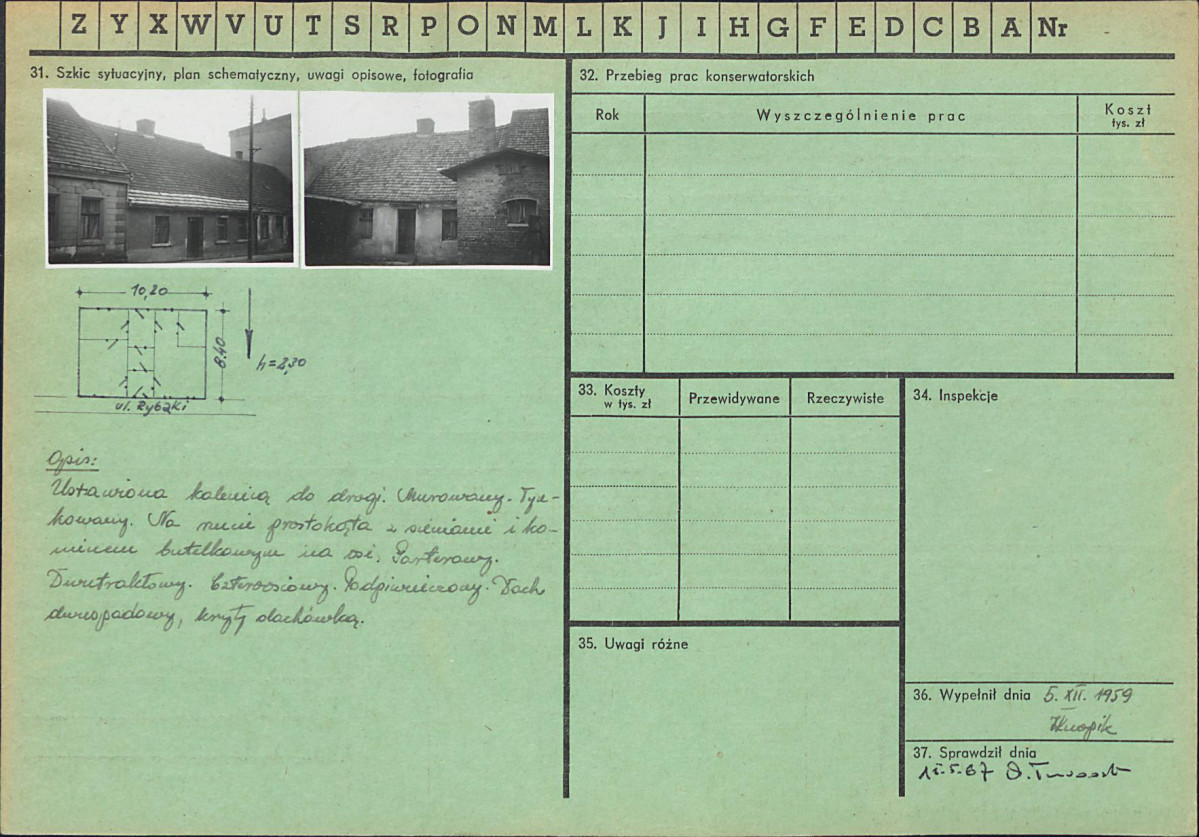 Z Y X W V U T S R P O N M L K J I H G F E D C B A Nr
31. Szkic sytuacyjny, plan schematyczny, uwagi opisowe, fotografia
10,20
8.40
h=2,30
ul. Rybaki
Opis:
Ustawiona kalenicą do drogi. Murowany. Tyn-
kowany. Na rzucie prostokąta z sieniami i ko-
minem butelkowym na osi. Parterowy.
Dwutraktowy. Czteroosiowy. Podpiwniczony. Dach
dwuspadowy, kryty dachówką.
32. Przebieg prac konserwatorskich
Rok
Wyszczególnienie prac
Koszt
tys. zł
33. Koszty
w tys. zł
Przewidywane
Rzeczywiste
34. Inspekcje
35. Uwagi różne
36. Wypełnił dnia 5. XII. 1959
37. Sprawdził dnia
15.5.67